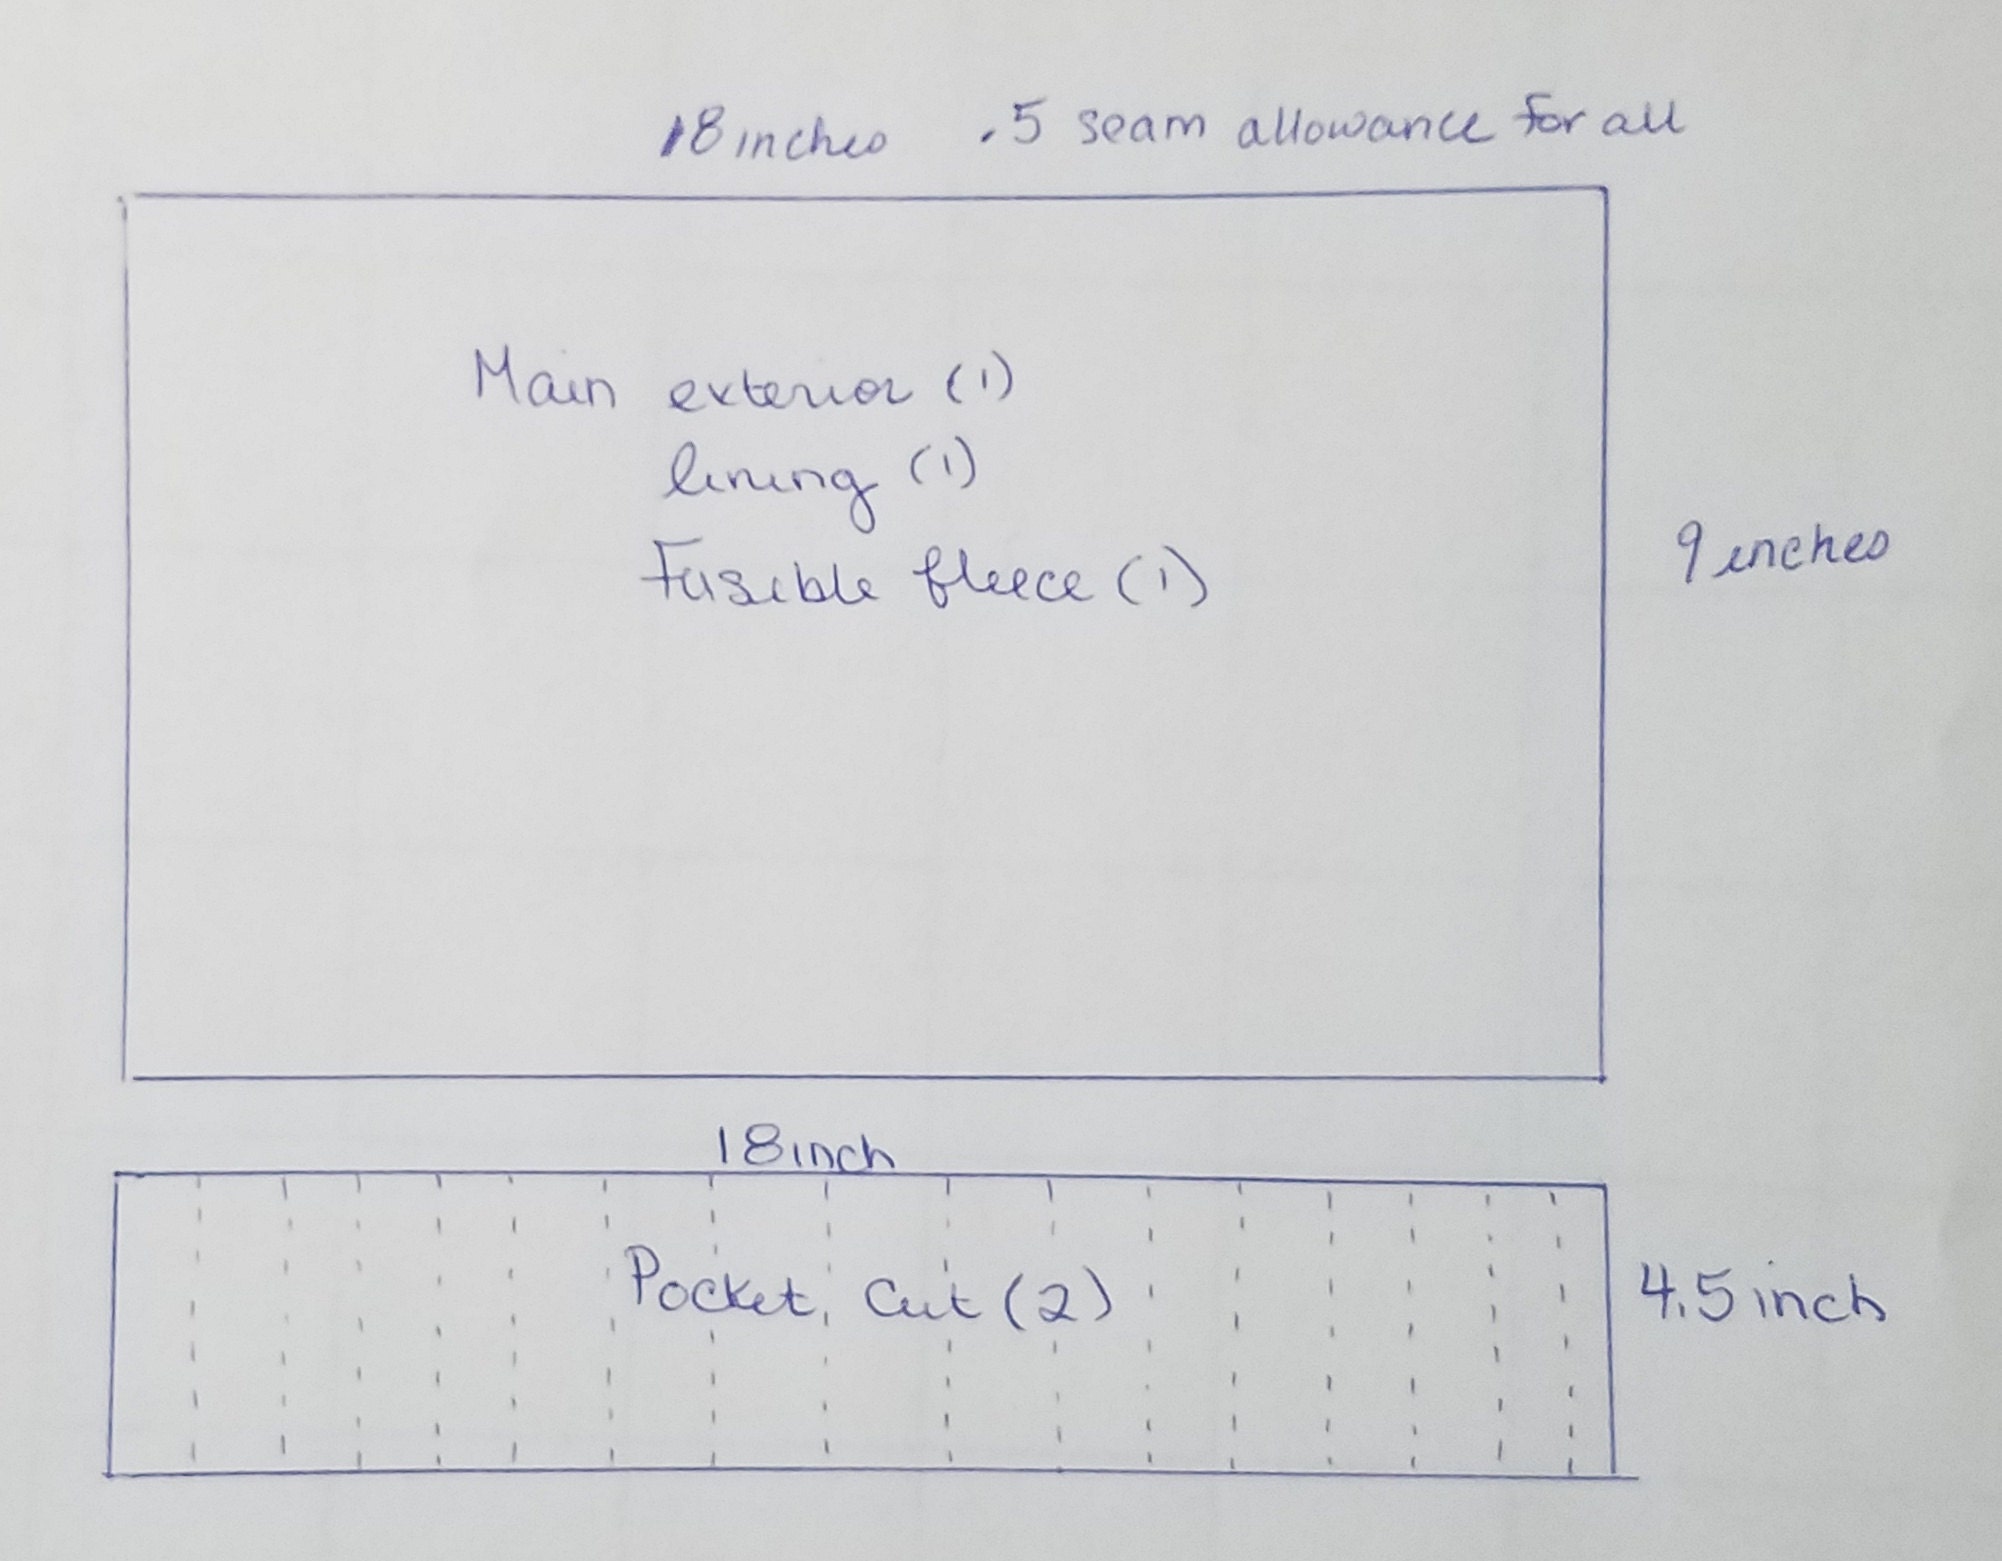 18 inches .5 seam allowance for all
Main exterior (1)
lining (1)
Fusible fleece (1)
9 inches
18 inch
Pocket, Cut (2)
4.5 inch